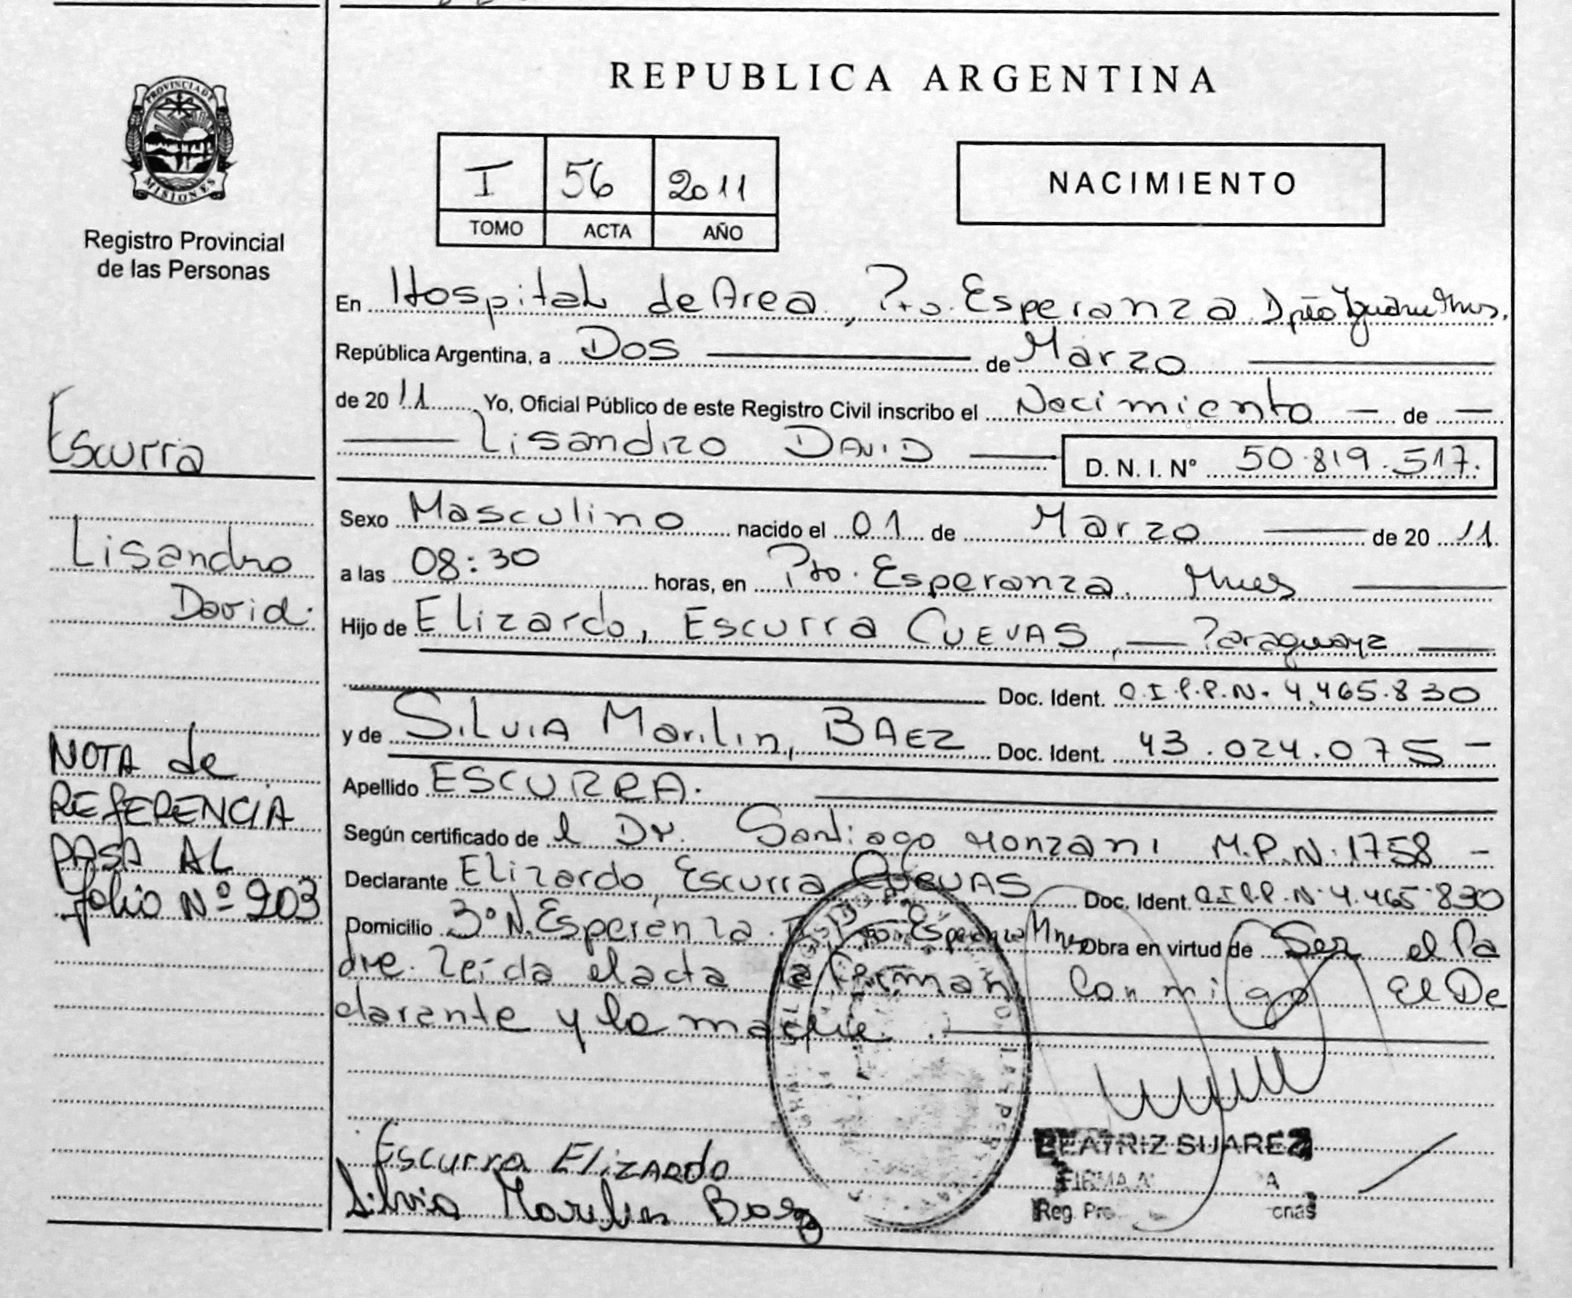 REPUBLICA ARGENTINA
PROVINCIA DE
MISIONES
Registro Provincial
de las Personas
I 56 2011
TOMO ACTA AÑO
NACIMIENTO
En Hospital de Area, Pto. Esperanza Dpto Iguazú Mnes,
República Argentina, a Dos de Marzo
de 2011 Yo, Oficial Público de este Registro Civil inscribo el Nacimiento - de -
Lisandro DAVID D. N. I. Nº 50.819.517.
Escurra
Lisandro
David.
Sexo Masculino nacido el 01 de Marzo de 2011
a las 08:30 horas, en Pto. Esperanza. Mnes
Hijo de Elizardo, Escurra CUEVAS, Paraguaya
Doc. Ident. C.I.P.P.N. 4.465.830
y de SILVIA Marilin, BAEZ Doc. Ident. 43.024.075 -
Apellido ESCURRA.
Según certificado de l Dr. Santiago Monzani M.P.N. 1758 -
Declarante Elizardo, Escurra CUEVAS Doc. Ident. C.I.P.P.N. 4.465.830
Domicilio 3º N. Esperanza. Pto. Esperanza Mnes Obra en virtud de Ser el Pa
dre. Leída el acta la firman conmigo El De
clarante y la madre.
NOTA de
REFERENCIA
PASA AL
folio Nº 203
Escurra ELIZARDO
Silvia Marilin Baez
BEATRIZ SUAREZ
FIRMA
Reg.